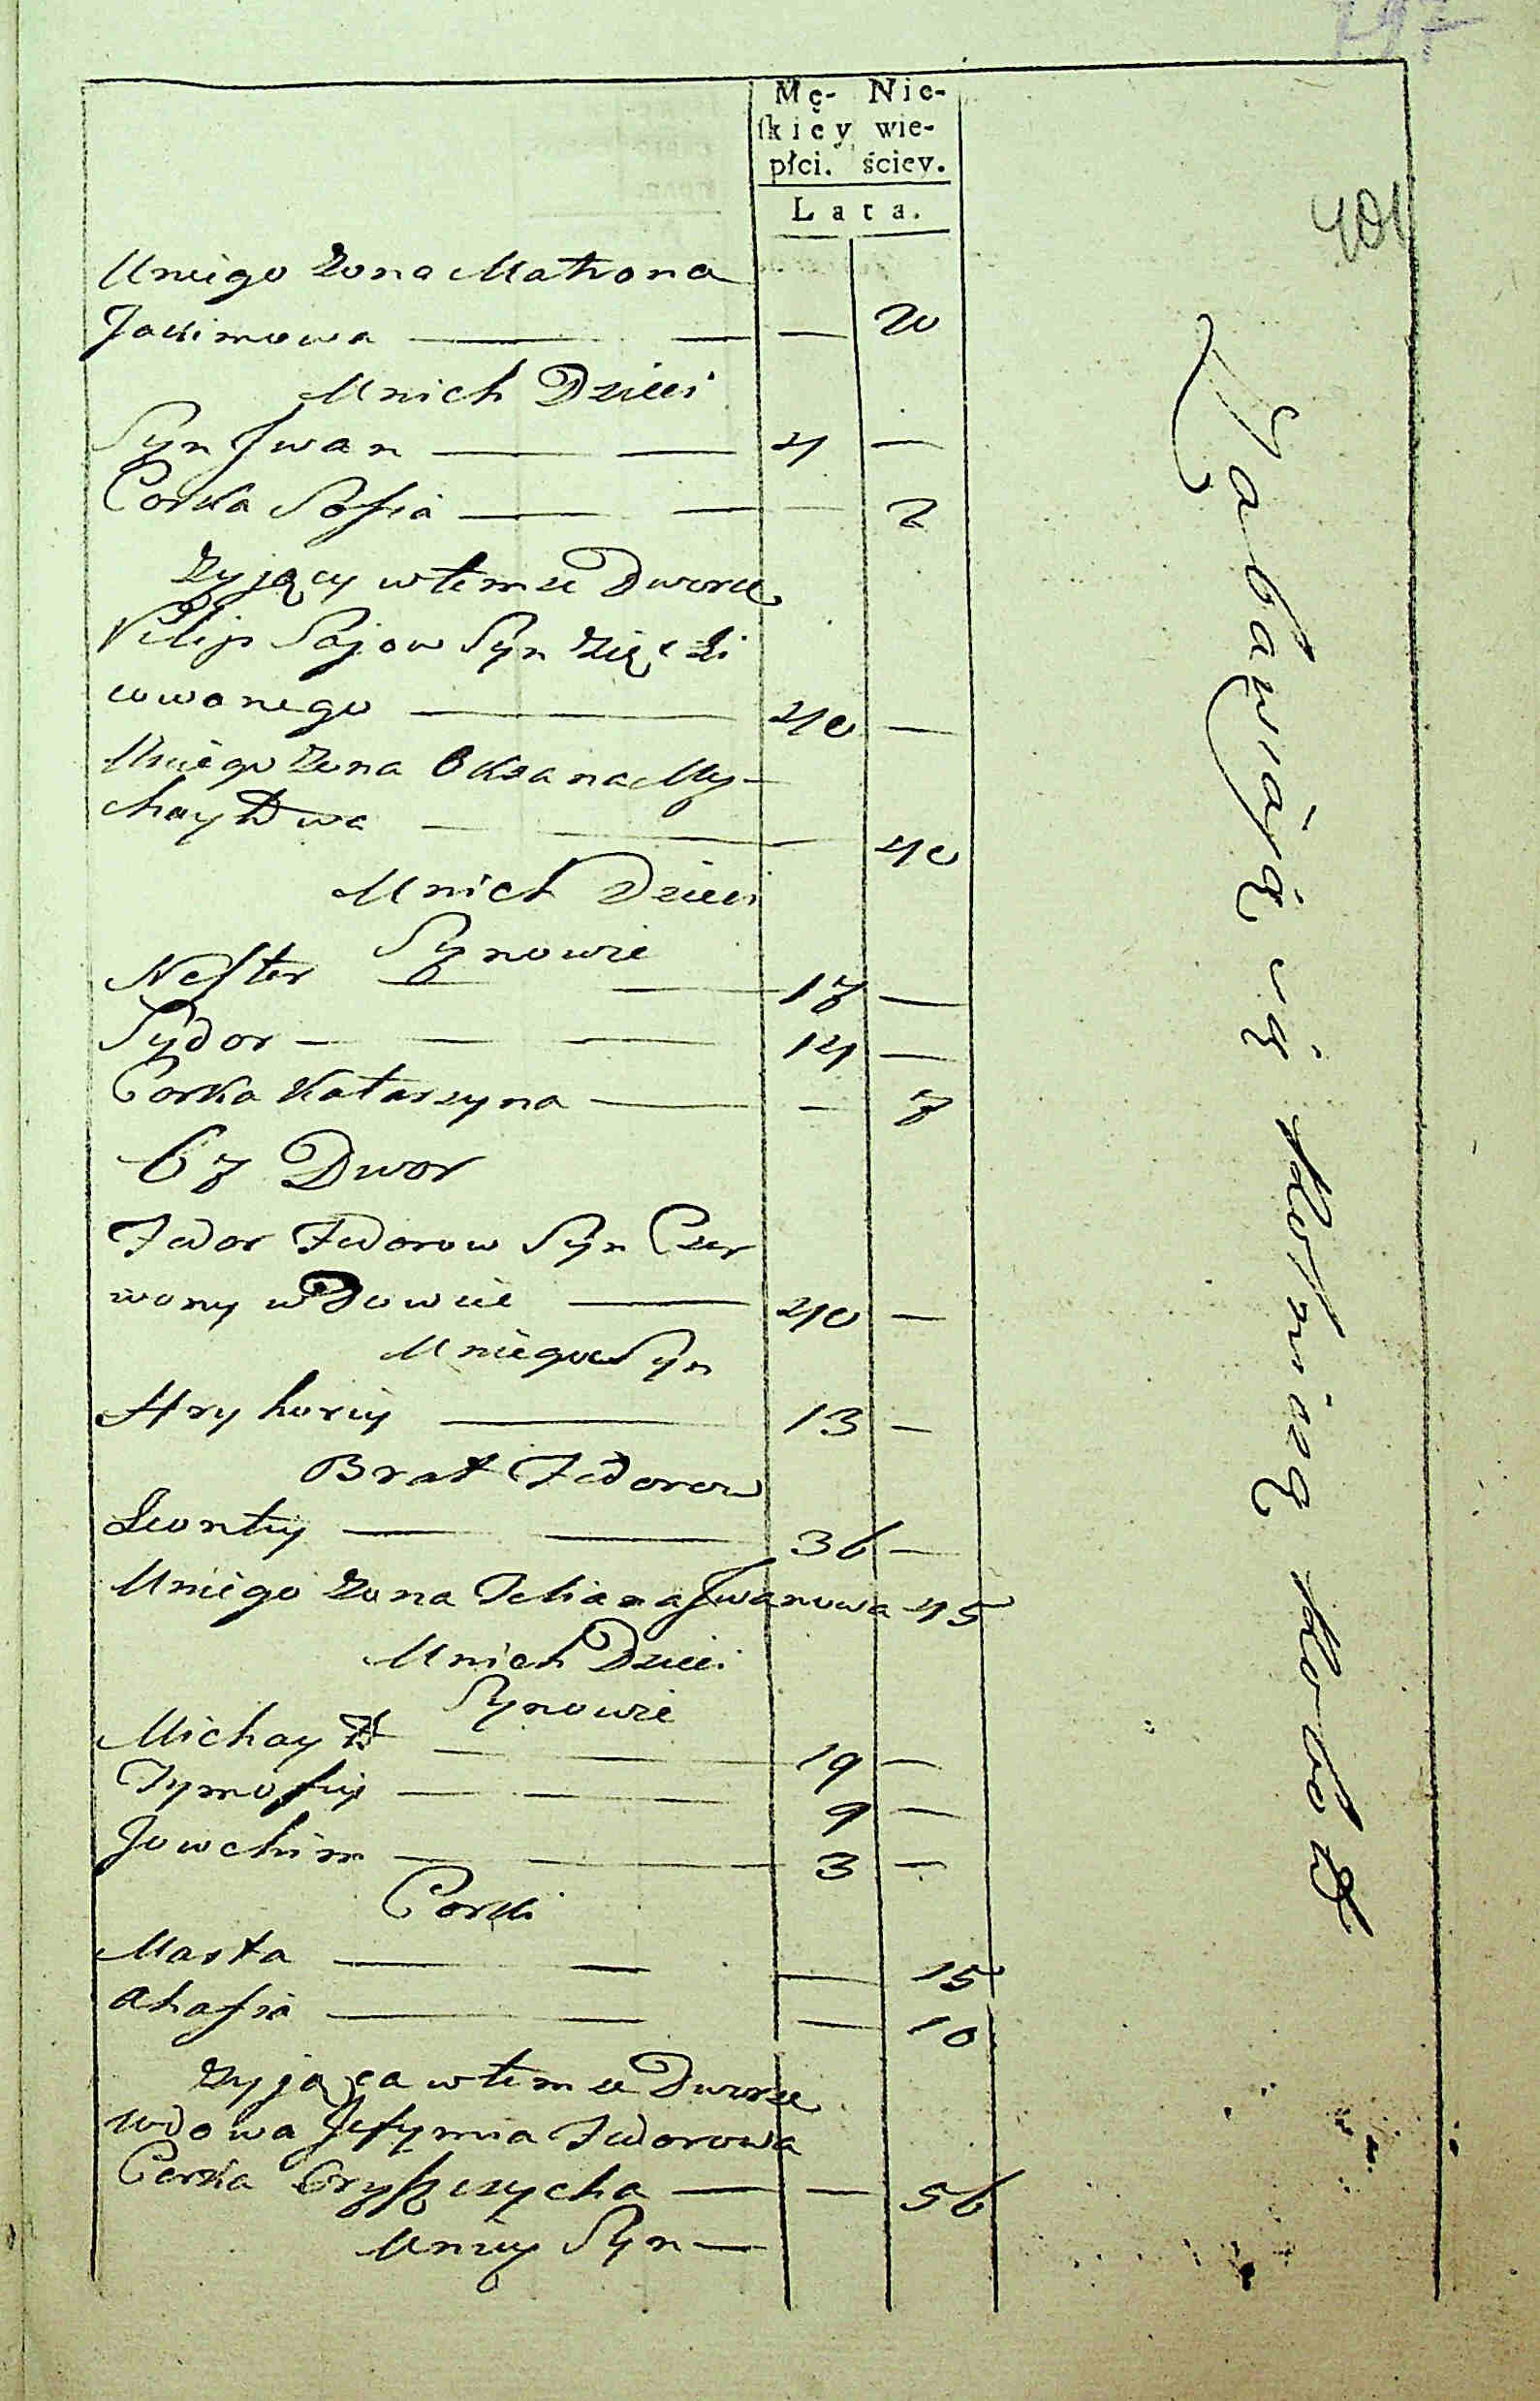 Mę- Nie-
ſkiey wie-
płci. ściey.
Lata.
401
Uniego Zona Matrona
Jackimowa — — — 20
Unich Dzieci
Syn Jwan — — 4 —
Corka Sofia — — — 2
Zyjący wtemze Dworze
Filip Sajow Syn
cowanego — 40 —
Uniego Zona Oksana My-
chayłowa — — — 40
Unich Dzieci
Synowie
Nester — — 17 —
Sydor — — — 14 —
Corka Katarzyna — — 7
67 Dwor
Fedor Fedorow Syn Czer
wony wdowiec — 40 —
Uniego Syn
Hryhoriy — 13 —
Brat Fedorow
Leontiy — — 36 —
Uniego Zona Tetiana Jwanowa 45
Unich Dzieci
Synowie
Michayło — — 19 —
Tymofiy — — — 9 —
Jowchim — — — 3 —
Corki
Marta — — — 15
Ahafia — — — 10
Zyjąca wtemze Dworze
wdowa Jefymia Fedorowa
Corka Oryszczycha — — 56
Uniey Syn —
Zabawiają się rolniczą robotą